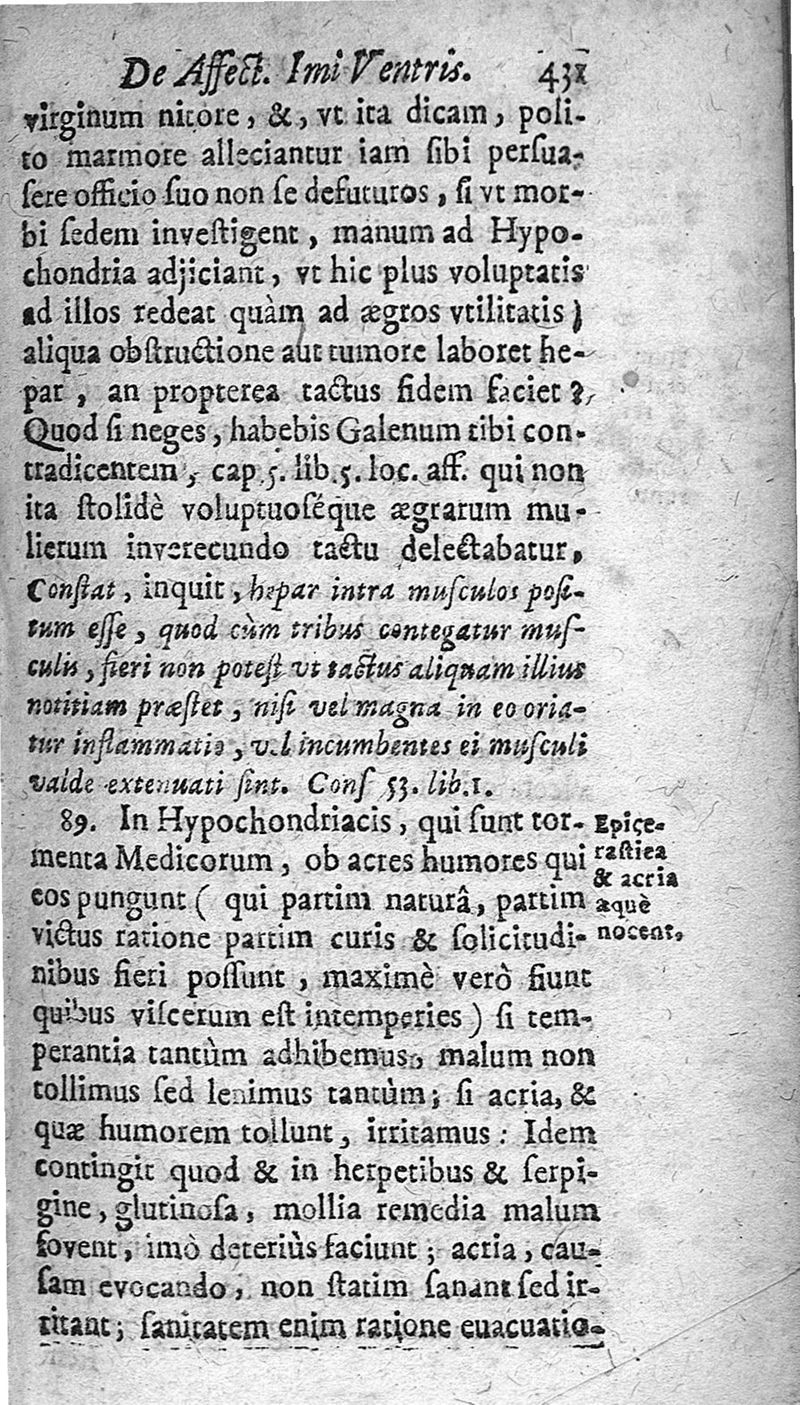 De Affect. Imi Ventris. 431
virginum nitore, &, vt ita dicam, poli-
to marmore alleciantur iam ſibi perſua-
ſere officio ſuo non ſe defuturos, ſi vt mor-
bi ſedem inveſtigent, manum ad Hypo-
chondria adjiciant, vt hic plus voluptatis
ad illos redeat quàm ad ægros vtilitatis)
aliqua obſtructione aut tumore laboret he-
par, an propterea tactus fidem faciet?
Quod ſi neges, habebis Galenum tibi con-
tradicentem, cap 5. lib.5. loc. aff. qui non
ita ſtolidè voluptuoſéque ægrarum mu-
lierum inverecundo tactu delectabatur,
Conſtat, inquit, hepar intra muſculos poſi-
tum eſſe, quod cùm tribus contegatur muſ-
culis, fieri non poteſt vt tactus aliquam illius
notitiam præſtet, niſi vel magna in eo oria-
tur inflammatio, vel incumbentes ei muſculi
valde extenuati ſint. Conſ 53. lib.1.
89. In Hypochondriacis, qui ſunt tor-
menta Medicorum, ob acres humores qui
eos pungunt (qui partim naturâ, partim
victus ratione partim curis & ſolicitudi-
nibus fieri poſſunt, maximè verò fiunt
quibus viſcerum eſt intemperies) ſi tem-
perantia tantùm adhibemus, malum non
tollimus ſed lenimus tantùm; ſi acria, &
quæ humorem tollunt, irritamus: Idem
contingit quod & in herpetibus & ſerpi-
gine, glutinoſa, mollia remedia malum
fovent, imò deteriùs faciunt; acria, cau-
ſam evocando, non ſtatim ſanant ſed ir-
ritant; ſanitatem enim ratione euacuatio-
Epice-
raſtica
& acria
æquè
nocent,